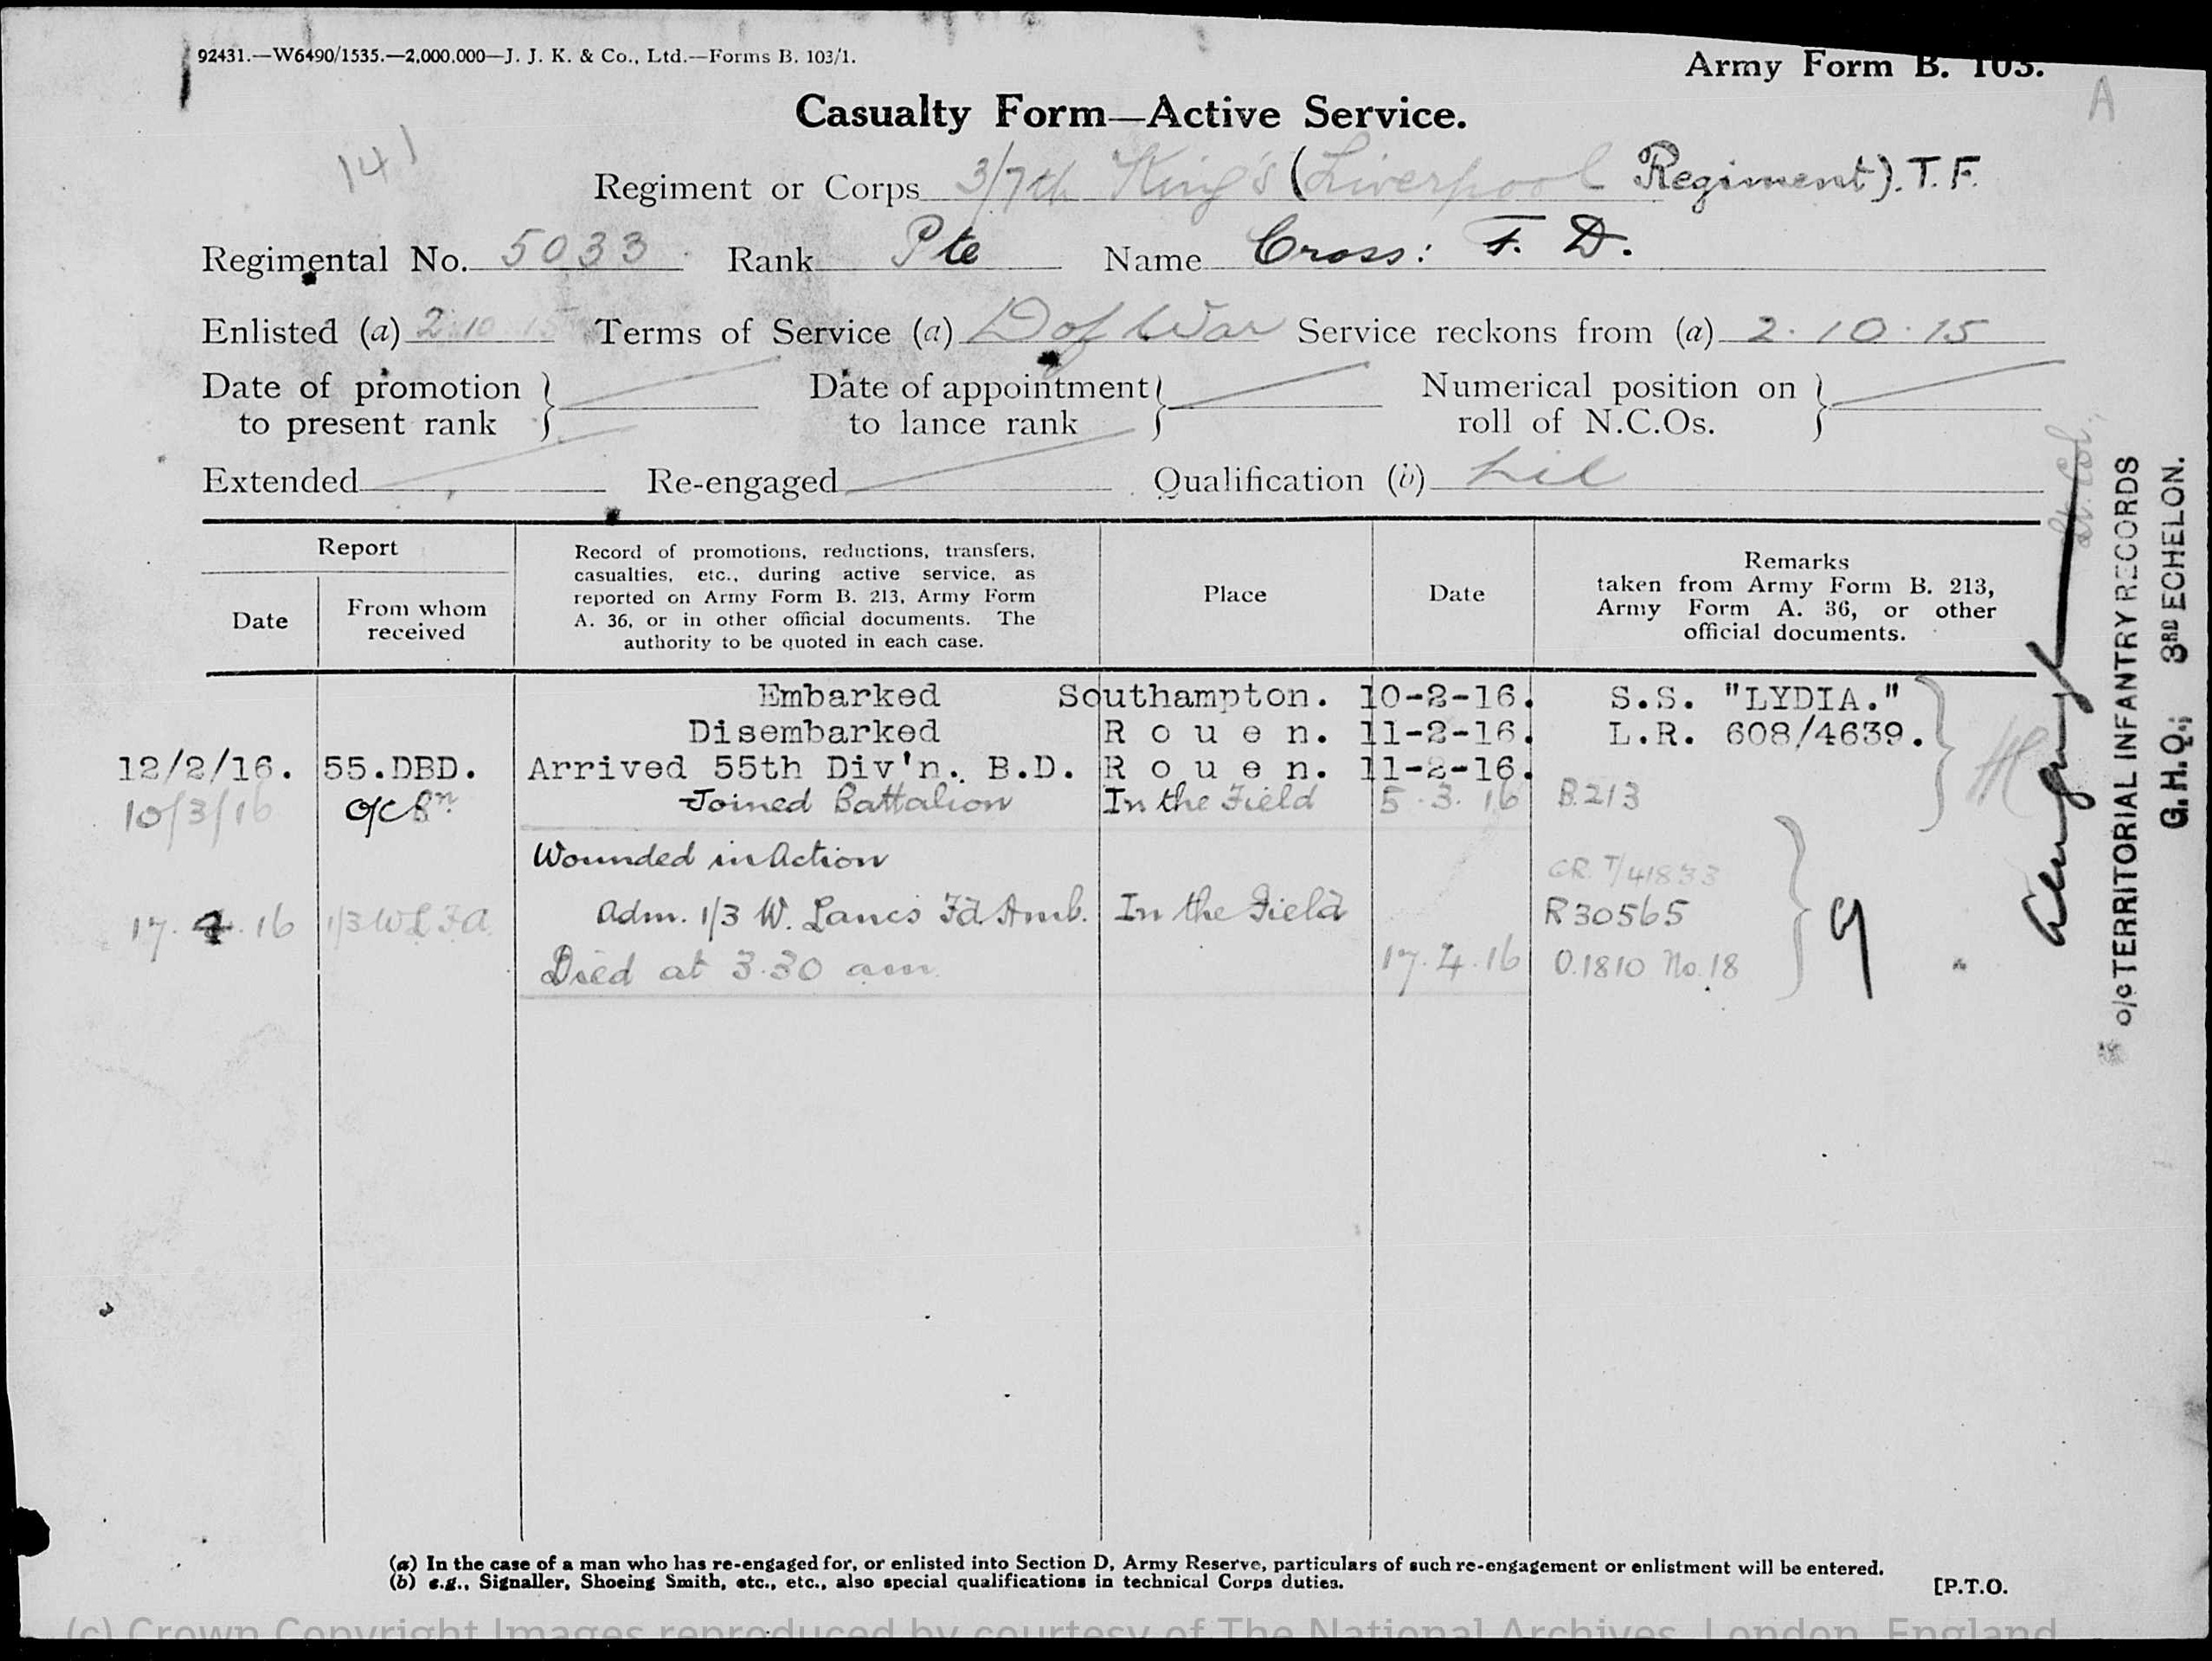 92431.—W6490/1535.—2,000,000—J. J. K. & Co., Ltd.—Forms B. 103/1.
Army Form B. 103.
A
Casualty Form—Active Service.
141
Regiment or Corps 3/7th King's (Liverpool Regiment). T. F.
Regimental No. 5033 Rank Pte Name Cross: F. D.
Enlisted (a) 2.10.15 Terms of Service (a) D of War Service reckons from (a) 2.10.15
Date of promotion to present rank } Date of appointment to lance rank } Numerical position on roll of N.C.Os. }
Extended Re-engaged Qualification (b)
Report
Date
From whom received
Record of promotions, reductions, transfers,
casualties, etc., during active service, as
reported on Army Form B. 213, Army Form
A. 36, or in other official documents. The
authority to be quoted in each case.
Place
Date
Remarks
taken from Army Form B. 213,
Army Form A. 36, or other
official documents.
Embarked Southampton. 10-2-16. S.S. "LYDIA."
Disembarked R o u e n. 11-2-16. L.R. 608/4639.
12/2/16. 55.DBD. Arrived 55th Div'n. B.D. R o u e n. 11-2-16.
10/3/16 O/C Bn Joined Battalion In the Field 5.3.16 B213
Wounded in Action
CR. T/41833
17.4.16 1/3 WLFA Adm. 1/3 W. Lancs Fd Amb. In the Field R30565
Died at 3.30 am. 17.4.16 O.1810 No.18
Lt. Col.
o/c TERRITORIAL INFANTRY RECORDS
G.H.Q., 3RD ECHELON.
(a) In the case of a man who has re-engaged for, or enlisted into Section D, Army Reserve, particulars of such re-engagement or enlistment will be entered.
(b) e.g., Signaller, Shoeing Smith, etc., etc., also special qualifications in technical Corps duties.
[P.T.O.
(c) Crown Copyright Images reproduced by courtesy of The National Archives, London, England